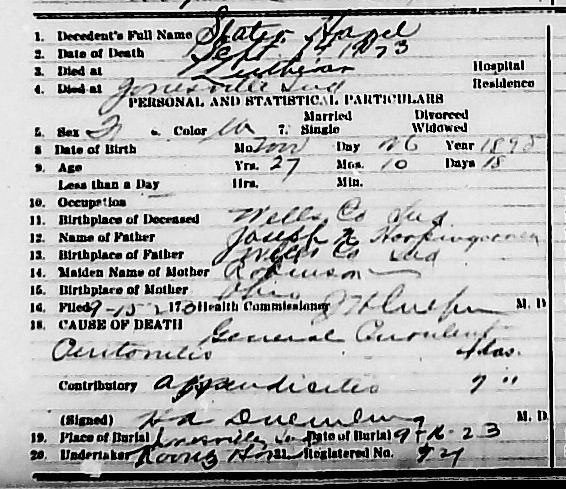 1. Decedent's Full Name Slater, Hazel
2. Date of Death Sept 14 1923
3. Died at Lutheran Hospital
4. Died at Jonesville Ind Residence
PERSONAL AND STATISTICAL PARTICULARS
Married Divorced
5. Sex F 6. Color W 7. Single Widowed
8 Date of Birth Mo. Nov Day 26 Year 1895
9. Age Yrs. 27 Mos. 10 Days 18
Less than a Day Hrs. Min.
10. Occupation
11. Birthplace of Deceased Wells Co Ind
12. Name of Father Joseph N
13. Birthplace of Father Wells Co Ind
14. Maiden Name of Mother Robinson
15. Birthplace of Mother Ohio
16. Filed 9-15-23 17. Health Commissioner M. D.
18. CAUSE OF DEATH General Purulent
Peritonitis 4 das.
Contributory appendicitis 7 "
(Signed) M. D.
19. Place of Burial Jonesville Ind Date of Burial 9-16-23
20. Undertaker 21. Registered No.